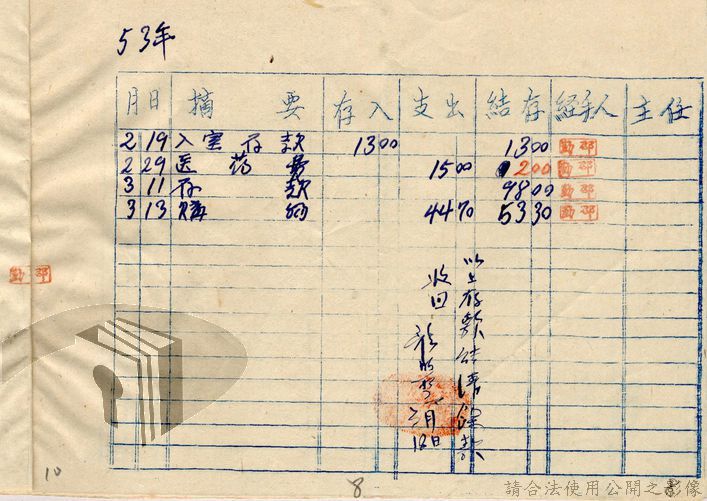 53年
月 日 摘要 存入 支出 結存 経手人 主任
2 19 入室存款 1300 1300
2 29 医药費 1500 200
3 11 存款 9800
3 13 購物 4470 5330
以上存款結清餘款
收回
三月
18日
10
8
請合法使用公開之影像